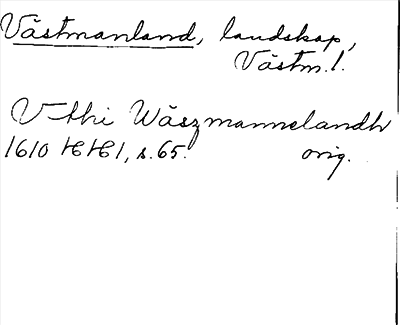 Västmanland, landskap,
Västm. l.
V-thi Wäszmannelandh
1610 HH1, s. 65. orig.